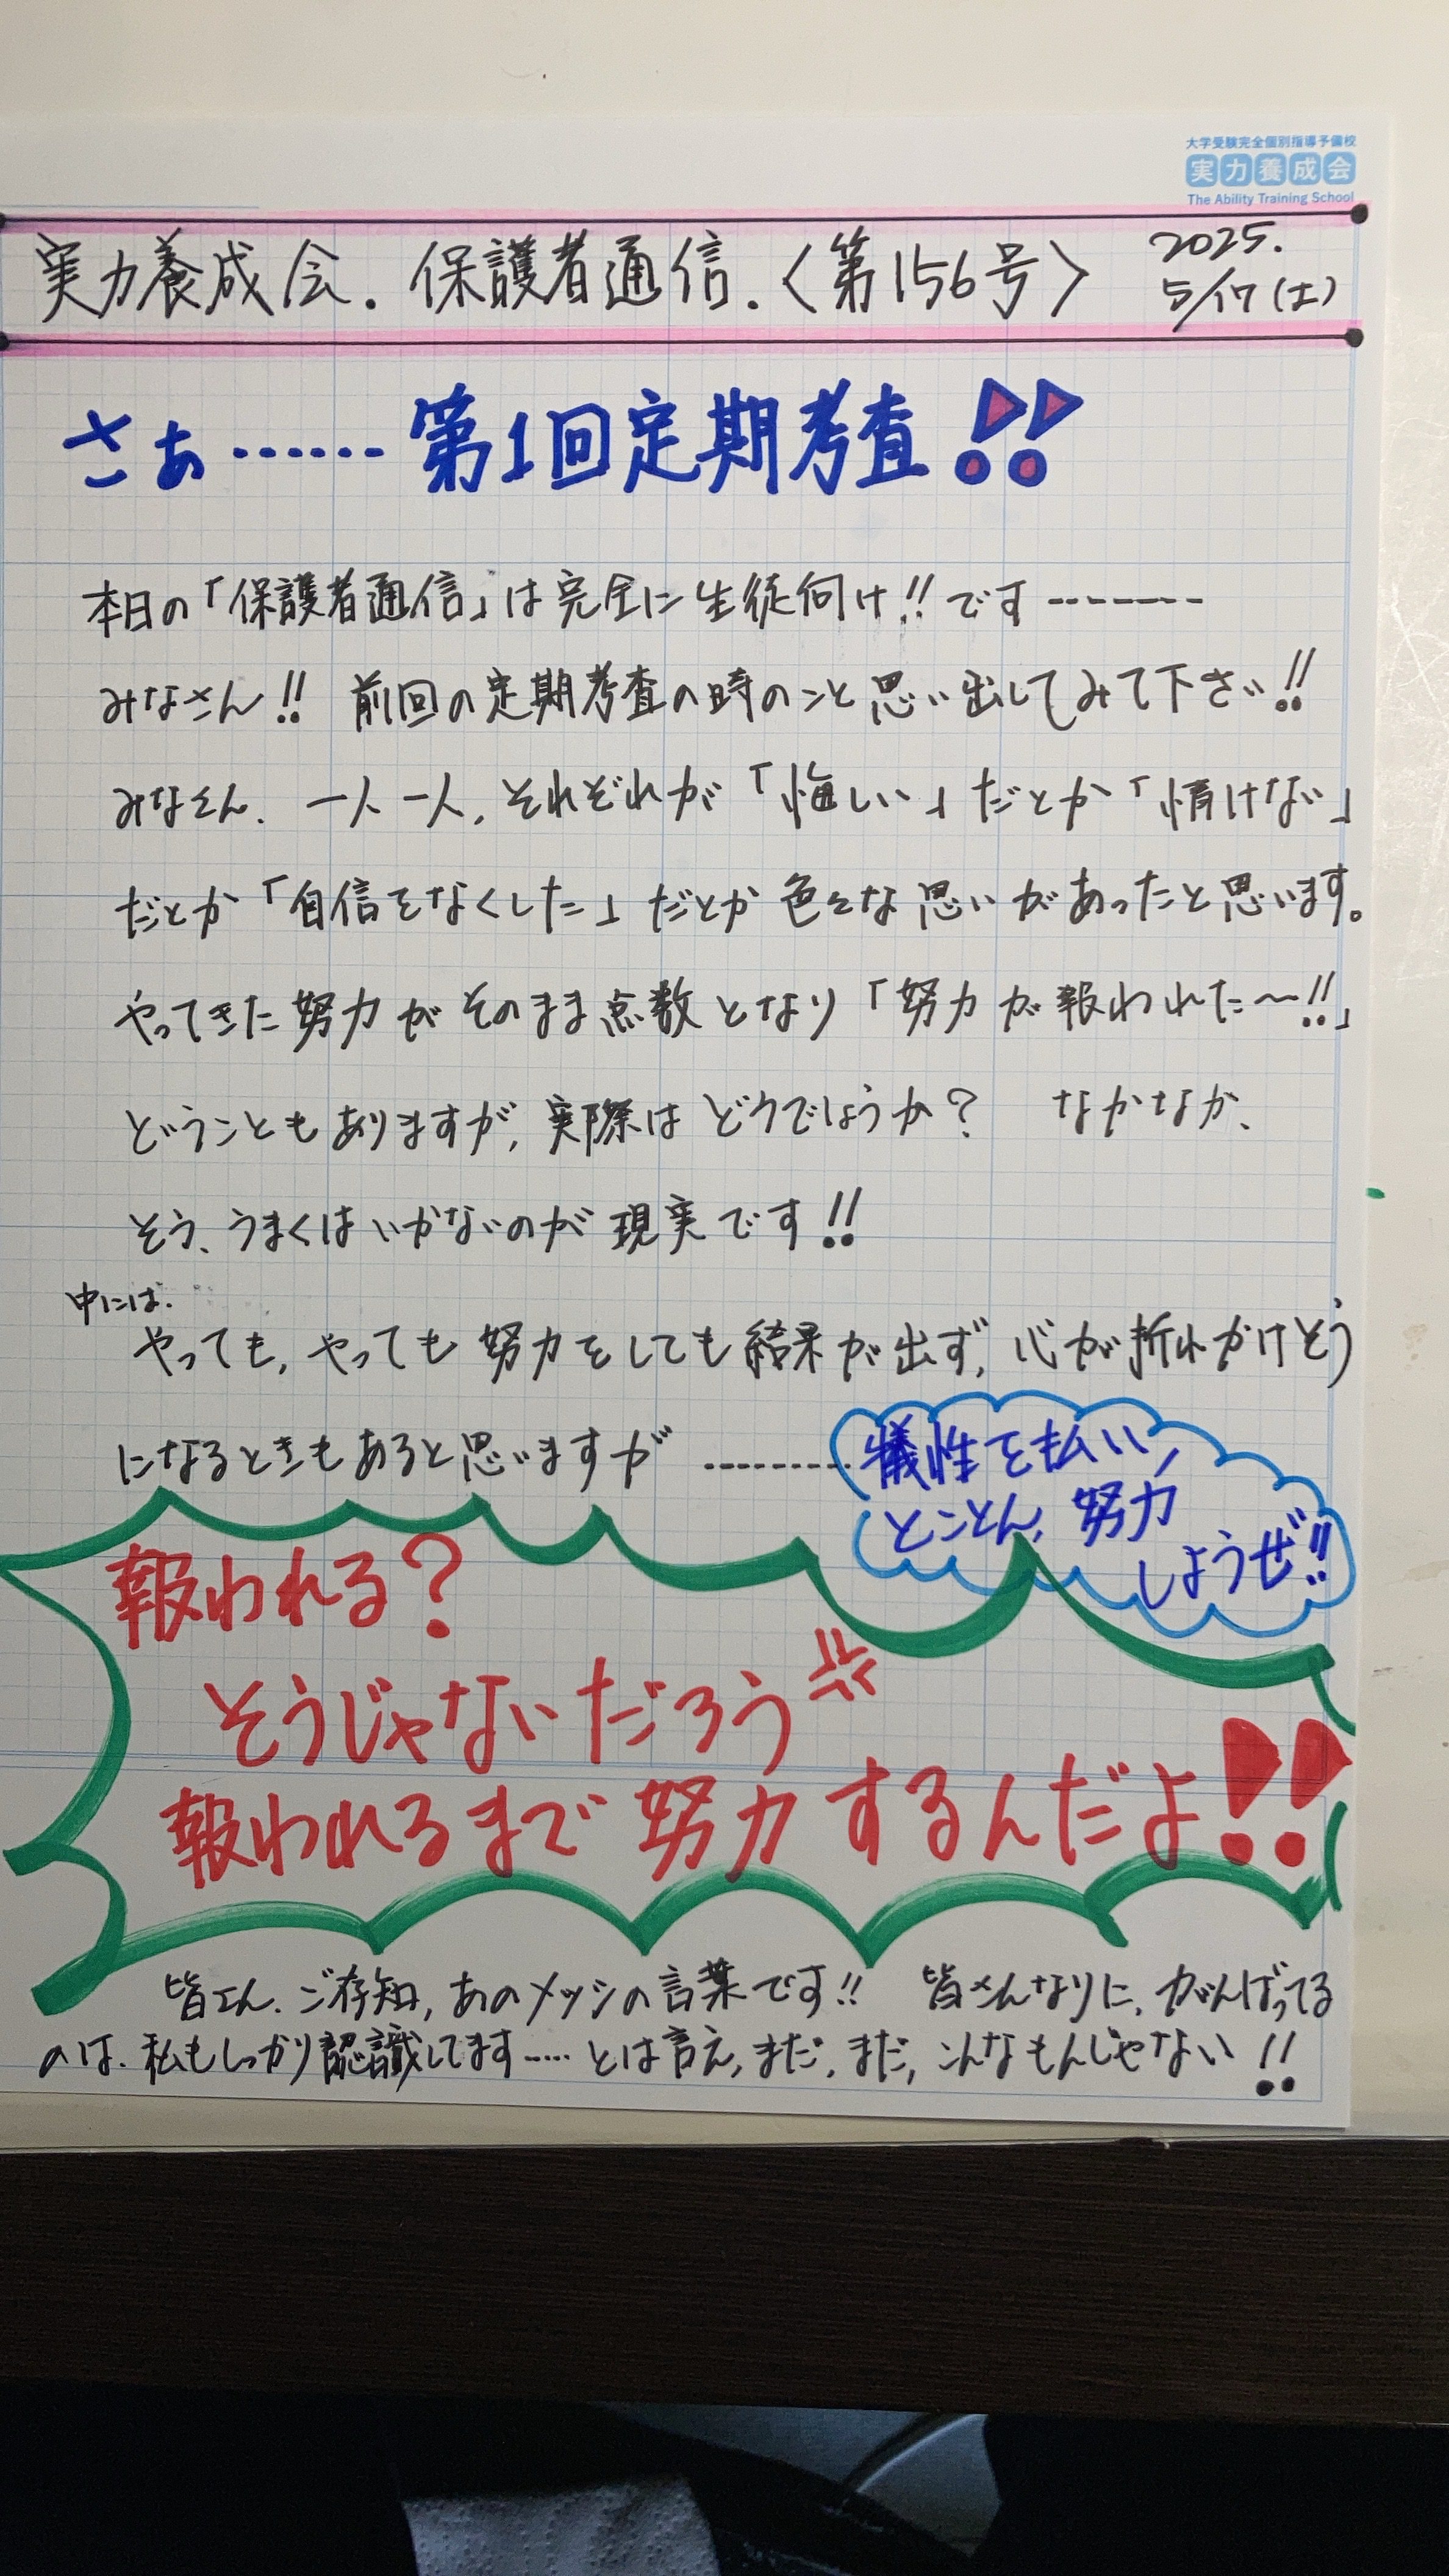 大学受験完全個別指導予備校
実力養成会
The Ability Training School
実力養成会.保護者通信.〈第156号〉
2025.
5/17(土)
さぁ……第1回定期考査!!
本日の「保護者通信」は完全に生徒向け!!です-------
みなさん!! 前回の定期考査の時のこと思い出してみて下さい!!
みなさん、一人一人、それぞれが「悔しい」だとか「情けない」
だとか「自信をなくした」だとか色々な思いがあったと思います。
やってきた努力がそのまま点数となり「努力が報われた〜!!」
ということもありますが、実際はどうでしょうか? なかなか、
そう、うまくはいかないのが現実です!!
中には、
やっても、やっても努力をしても結果が出ず、心が折れかけそう
になるときもあると思いますが………
犠性を払い、
とことん、努力
しようぜ!!
報われる?
そうじゃないだろう
報われるまで努力するんだよ!!
皆さん、ご存知、あのメッシの言葉です!! 皆さんなりに、がんばってる
のは、私もしっかり認識してます……とは言え、まだ、まだ、こんなもんじゃない!!